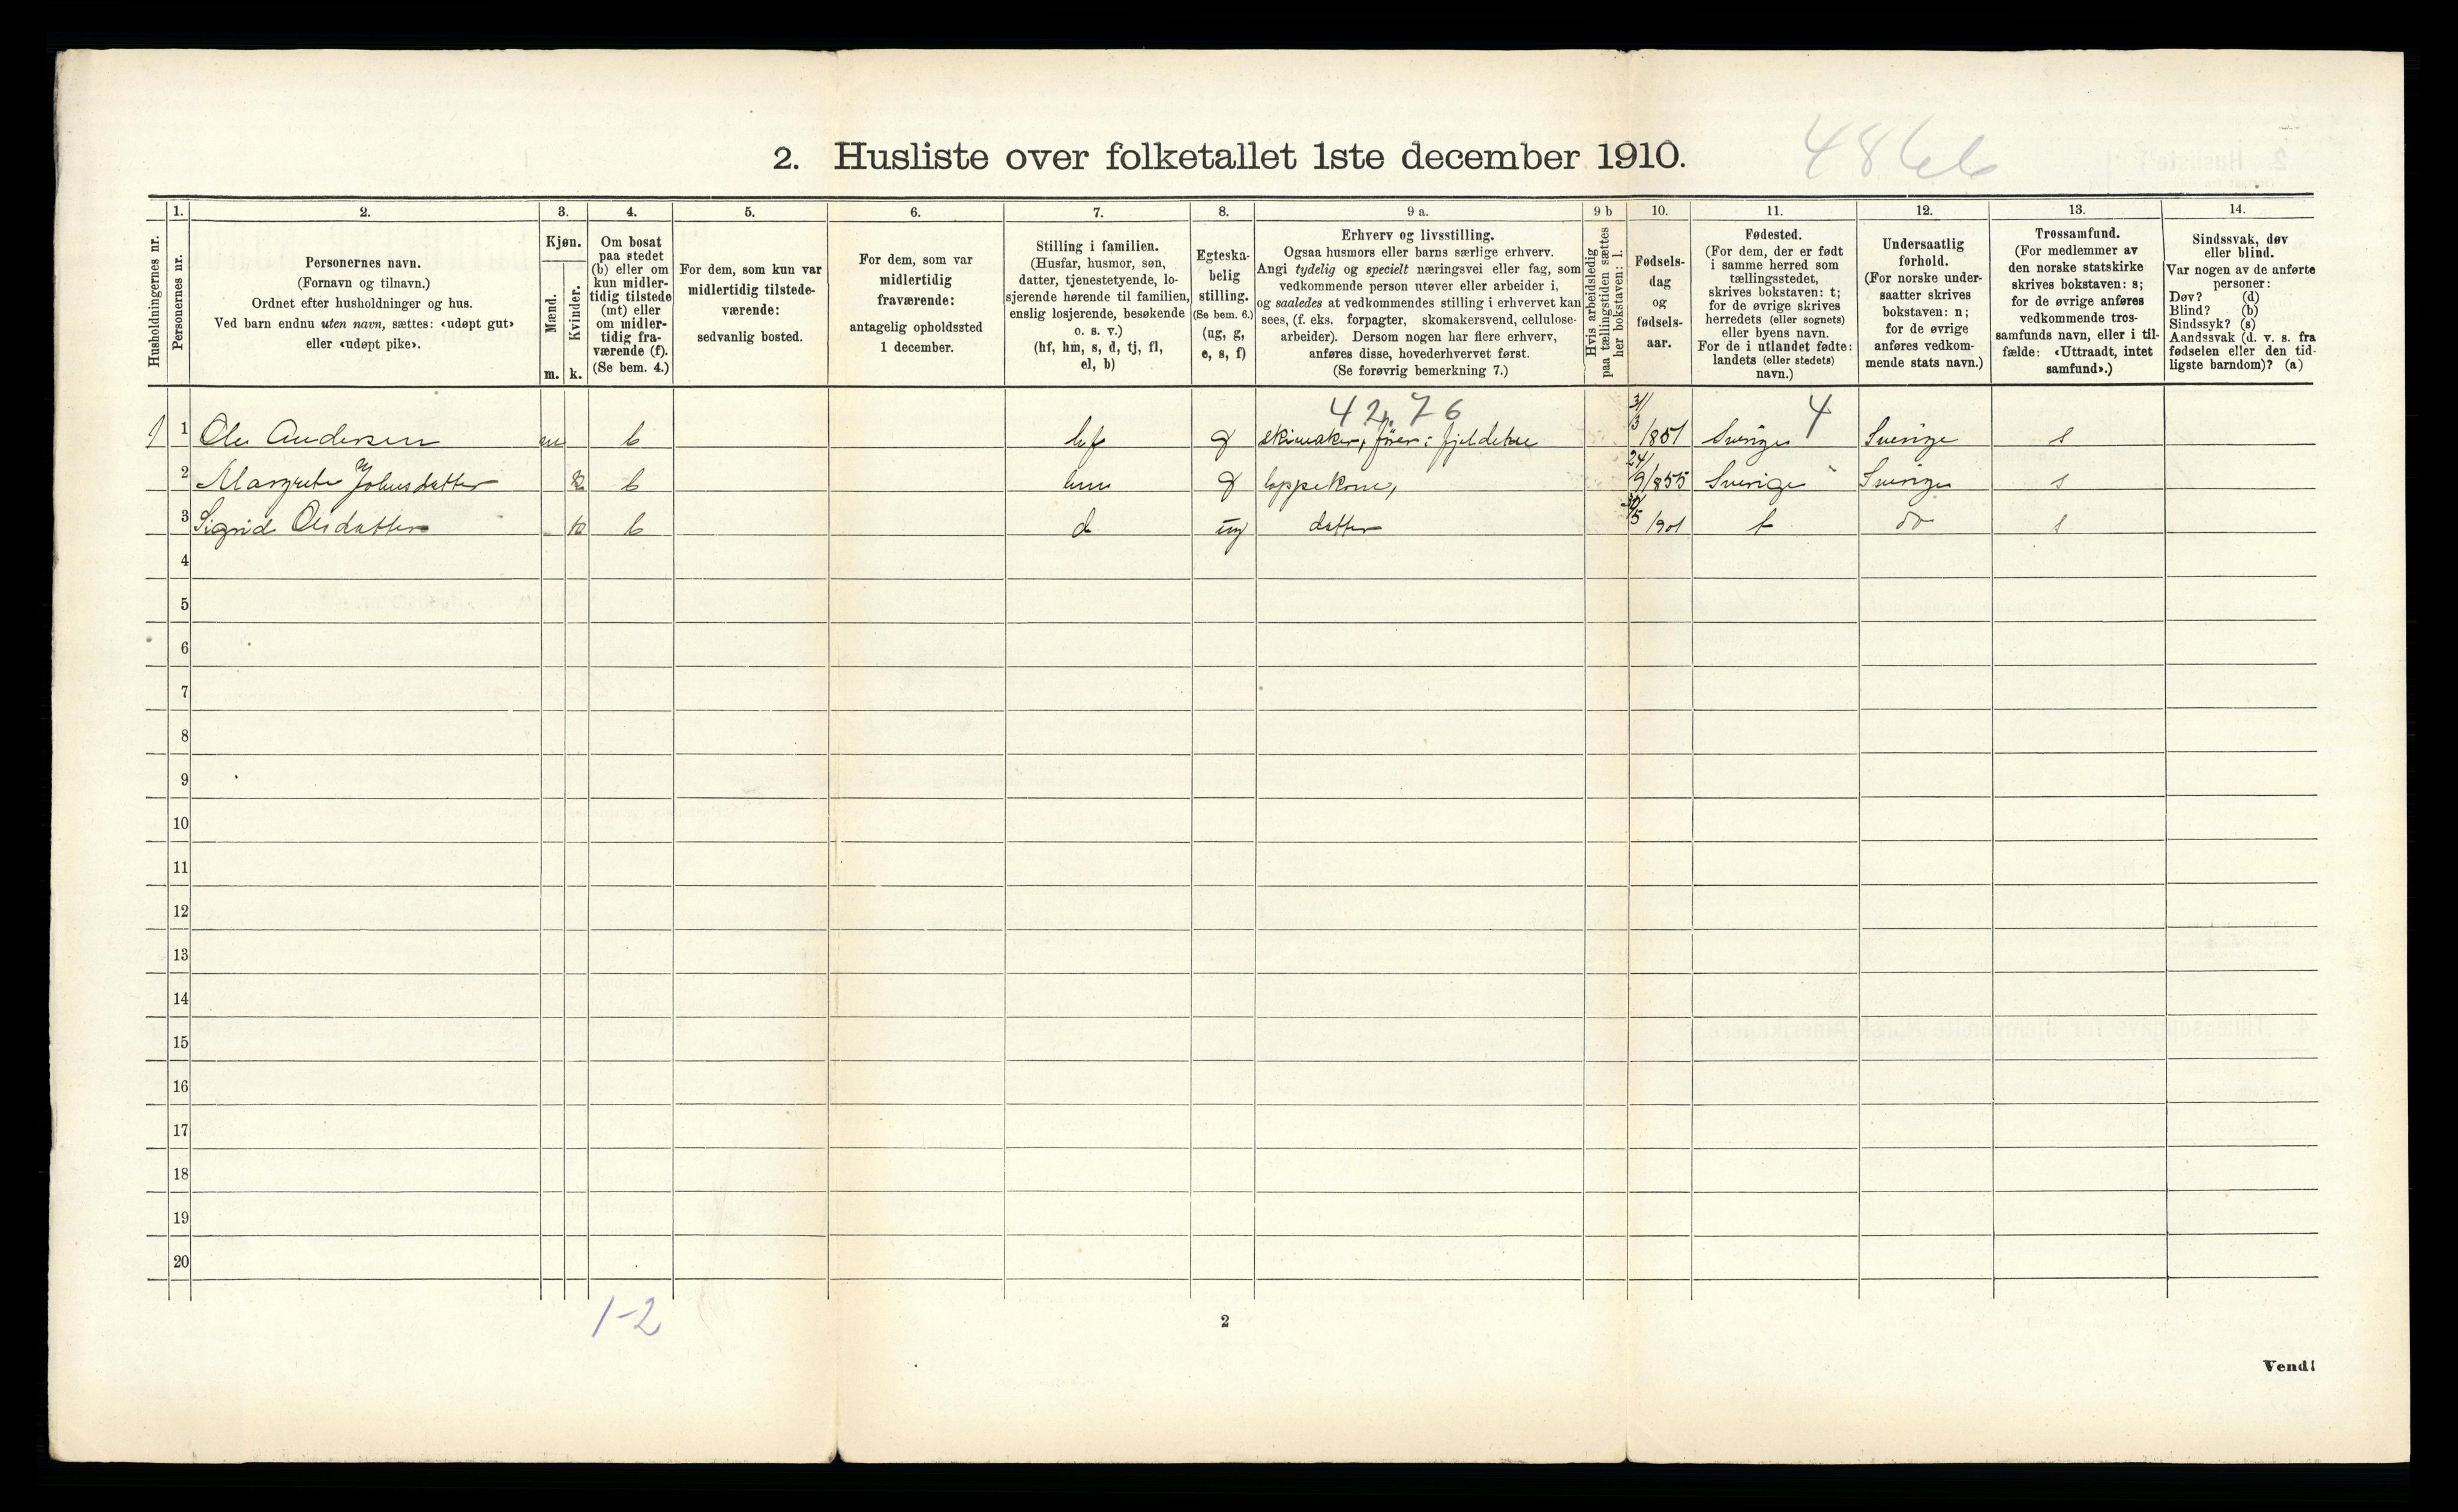 2. Husliste over folketallet 1ste december 1910.
4866
Husholdningernes nr.
1.
Personernes nr.
2.
Personernes navn.
(Fornavn og tilnavn.)
Ordnet efter husholdninger og hus.
Ved barn endnu uten navn, sættes: «udøpt gut»
eller «udøpt pike».
3.
Kjøn.
Mænd.
Kvinder.
m. k.
4.
Om bosat
paa stedet
(b) eller om
kun midler-
tidig tilstede
(mt) eller
om midler-
tidig fra-
værende (f).
(Se bem. 4.)
5.
For dem, som kun var
midlertidig tilstede-
værende:
sedvanlig bosted.
6.
For dem, som var
midlertidig
fraværende:
antagelig opholdssted
1 december.
7.
Stilling i familien.
(Husfar, husmor, søn,
datter, tjenestetyende, lo-
sjerende hørende til familien,
enslig losjerende, besøkende
o. s. v.)
(hf, hm, s, d, tj, fl,
el, b)
8.
Egteska-
belig
stilling.
(Se bem. 6.)
(ug, g,
e, s, f)
9 a.
Erhverv og livsstilling.
Ogsaa husmors eller barns særlige erhverv.
Angi tydelig og specielt næringsvei eller fag, som
vedkommende person utøver eller arbeider i,
og saaledes at vedkommendes stilling i erhvervet kan
sees, (f. eks. forpagter, skomakersvend, cellulose-
arbeider). Dersom nogen har flere erhverv,
anføres disse, hovederhvervet først.
(Se forøvrig bemerkning 7.)
9 b
Hvis arbeidsledig
paa tællingstiden sættes
her bokstaven: l.
10.
Fødsels-
dag
og
fødsels-
aar.
11.
Fødested.
(For dem, der er født
i samme herred som
tællingsstedet,
skrives bokstaven: t;
for de øvrige skrives
herredets (eller sognets)
eller byens navn.
For de i utlandet fødte:
landets (eller stedets)
navn.)
12.
Undersaatlig
forhold.
(For norske under-
saatter skrives
bokstaven: n;
for de øvrige
anføres vedkom-
mende stats navn.)
13.
Trossamfund.
(For medlemmer av
den norske statskirke
skrives bokstaven: s;
for de øvrige anføres
vedkommende tros-
samfunds navn, eller i til-
fælde: «Uttraadt, intet
samfund».)
14.
Sindssvak, døv
eller blind.
Var nogen av de anførte
personer:
Døv? (d)
Blind? (b)
Sindssyk? (s)
Aandssvak (d. v. s. fra
fødselen eller den tid-
ligste barndom)? (a)
42.76 4
1 1 Ole Andersen m b hf g skimaker, fører i fjeldene 31/3 1851 Sverige Sverige s
2 Margrete Johnsdatter k b hm g lappekone, 24/9 1855 Sverige Sverige s
3 Sigrid Olsdatter k b d ug datter /5 1901 t do s
4
5
6
7
8
9
10
11
12
13
14
15
16
17
18
19
20
1-2
2
Vend!